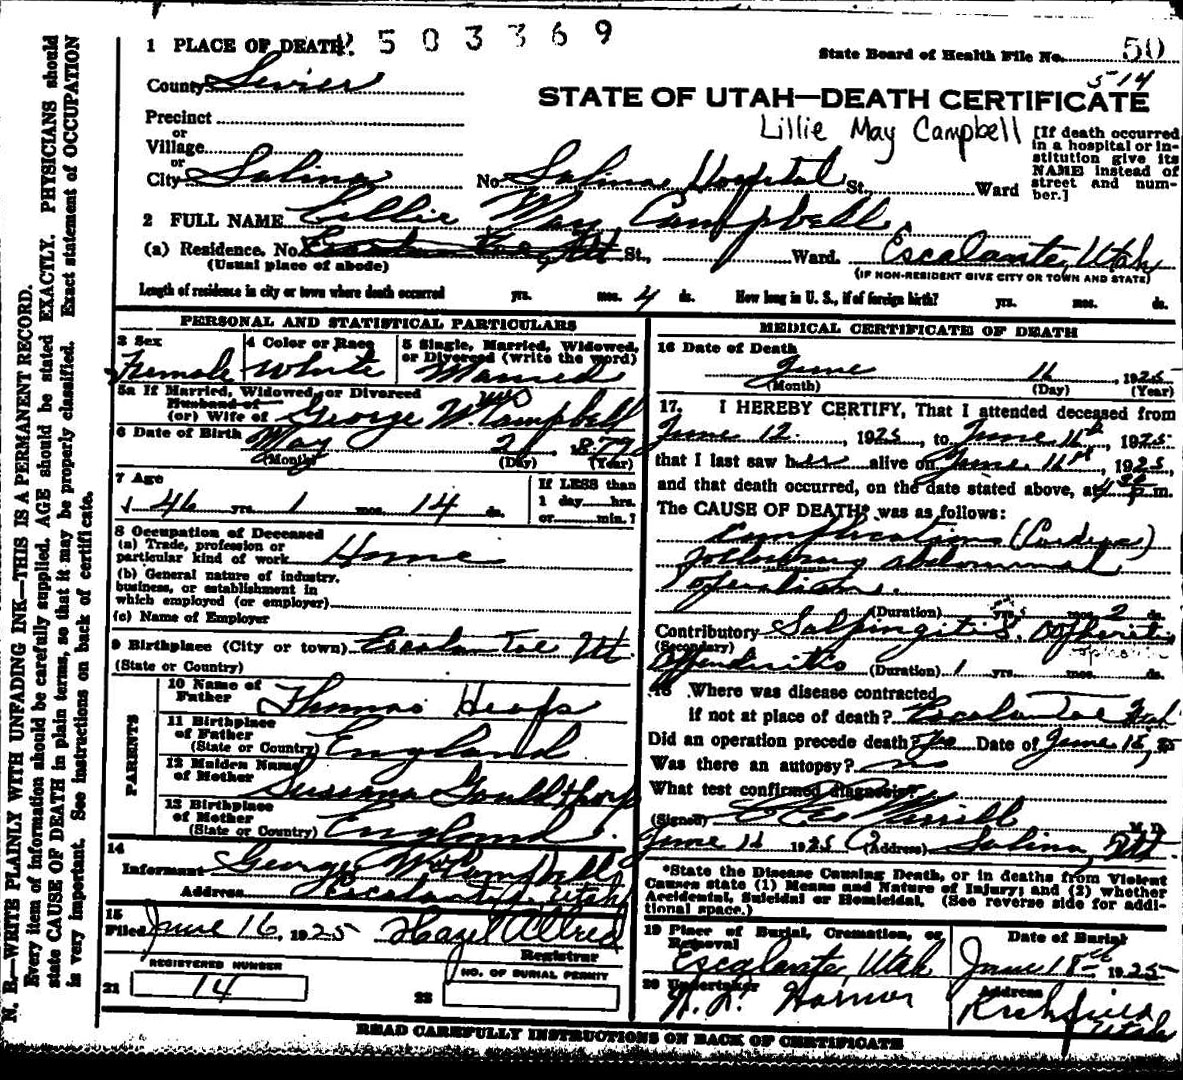 2503369
1 PLACE OF DEATH
State Board of Health File No. 50
514
County Sevier
STATE OF UTAH—DEATH CERTIFICATE
Precinct
Lillie May Campbell
or
Village
or
City Salina No. Salina Hospital St., Ward
[If death occurred
in a hospital or in-
stitution give its
NAME instead of
street and num-
ber.]
2 FULL NAME Lillie May Campbell
(a) Residence. No. St., Ward. Escalante, Utah
(Usual place of abode) (IF NON-RESIDENT GIVE CITY OR TOWN AND STATE)
Length of residence in city or town where death occurred yrs. mos. 4 ds. How long in U. S., if of foreign birth? yrs. mos. ds.
PERSONAL AND STATISTICAL PARTICULARS
3 Sex Female
4 Color or Race White
5 Single, Married, Widowed,
or Divorced (write the word)
Married
5a If Married, Widowed, or Divorced
Husband of
(or) Wife of George Wm Campbell
6 Date of Birth May 2 1879
(Month) (Day) (Year)
7 Age
46 yrs. 1 mos. 14 ds.
If LESS than
1 day hrs.
or min.?
8 Occupation of Deceased
(a) Trade, profession or
particular kind of work Home
(b) General nature of industry,
business, or establishment in
which employed (or employer)
(c) Name of Employer
9 Birthplace (City or town) Escalante Ut.
(State or Country)
PARENTS
10 Name of
Father Thomas Heaps
11 Birthplace
of Father
(State or Country) England
12 Maiden Name
of Mother Susanna Gouldthorp
13 Birthplace
of Mother
(State or Country) England
14
Informant George Wm Campbell
Address Escalante, Utah
15
Filed June 16, 1925 Hazel Allred
Registrar
REGISTERED NUMBER
21 14
NO. OF BURIAL PERMIT
22
MEDICAL CERTIFICATE OF DEATH
16 Date of Death
June 16, 1925
(Month) (Day) (Year)
17. I HEREBY CERTIFY, That I attended deceased from
June 12, 1925, to June 16th, 1925
that I last saw her alive on June 16th, 1925,
and that death occurred, on the date stated above, at 4 30 p m.
The CAUSE OF DEATH* was as follows:
Complications (Cardiac)
following abdominal
operation.
(Duration) yrs. mos. 2 ds.
Contributory Salpingitis. Oophoritis
(Secondary)
Appendicitis (Duration) 1 yrs. mos. ds.
18 Where was disease contracted
if not at place of death? Escalante Utah
Did an operation precede death? Yes Date of June 15, 25
Was there an autopsy? no
What test confirmed diagnosis?
(Signed) Merrill M. D.
June 16 1925 (Address) Salina, Utah
*State the Disease Causing Death, or in deaths from Violent
Causes state (1) Means and Nature of Injury; and (2) whether
Accidental, Suicidal or Homicidal. (See reverse side for addi-
tional space.)
19 Place of Burial, Cremation, or
Removal
Escalante, Utah
Date of Burial
June 18th 1925
20 Undertaker
Address
Richfield
Utah
READ CAREFULLY INSTRUCTIONS ON BACK OF CERTIFICATE
N. B.—WRITE PLAINLY WITH UNFADING INK—THIS IS A PERMANENT RECORD.
Every item of information should be carefully supplied. AGE should be stated EXACTLY. PHYSICIANS should
state CAUSE OF DEATH in plain terms, so that it may be properly classified. Exact statement of OCCUPATION
is very important. See instructions on back of certificate.